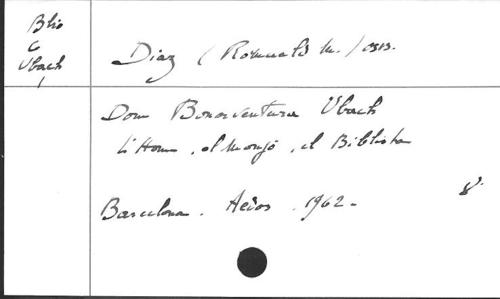 Blio
C
Ubach
1
Diaz (Romuald M.) OSB.
Dom Bonaventura Ubach
L'Home, el monjo, el Biblista
Barcelona. Aedos. 1962-
8º